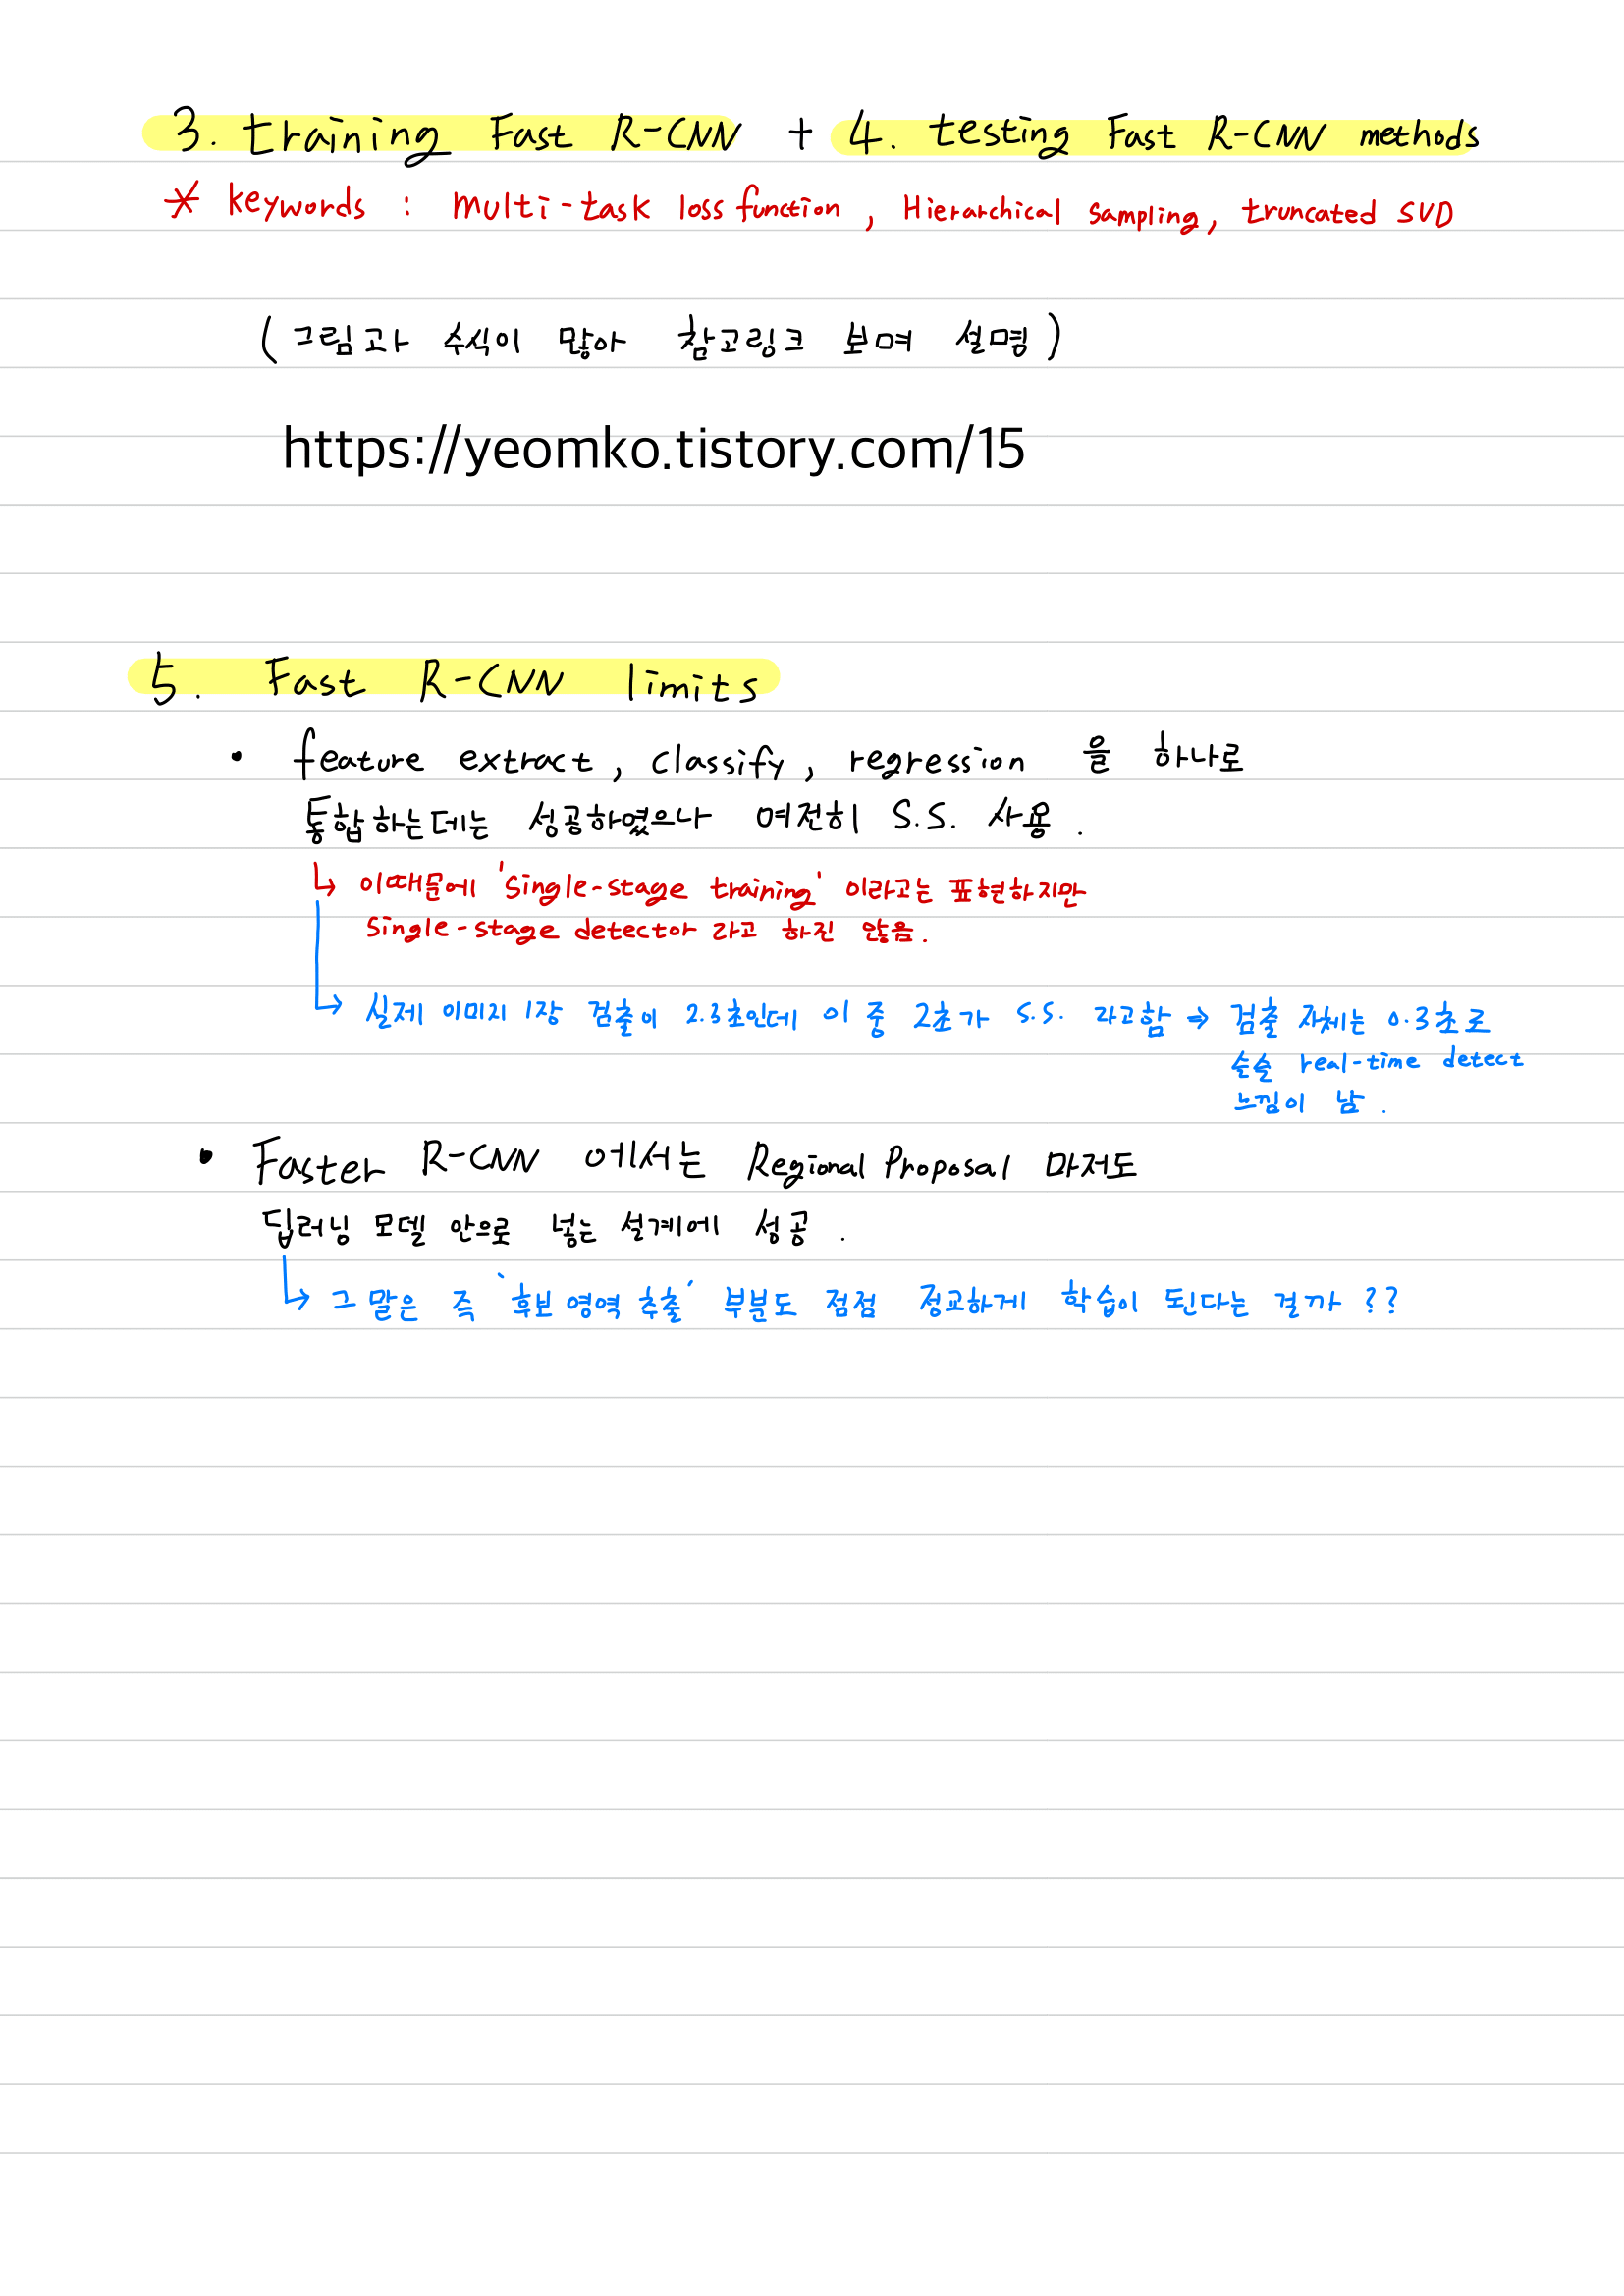 3. training Fast R-CNN + 4. testing Fast R-CNN methods
* keywords : multi-task loss function, Hierarchical sampling, truncated SVD
(그림과 수식이 많아 참고링크 보며 설명)
https://yeomko.tistory.com/15
5. Fast R-CNN limits
• feature extract, classify, regression 을 하나로
통합하는데는 성공하였으나 여전히 S.S. 사용.
↳ 이때문에 'single-stage training' 이라고는 표현하지만
single-stage detector 라고 하진 않음.
↳ 실제 이미지 1장 검출이 2.3초인데 이 중 2초가 S.S. 라고함 ⇒ 검출 자체는 0.3초로
슬슬 real-time detect
느낌이 남.
• Faster R-CNN 에서는 Regional Proposal 마저도
딥러닝 모델 안으로 넣는 설계에 성공.
↳ 그 말은 즉 '후보 영역 추출' 부분도 점점 정교하게 학습이 된다는 걸까??